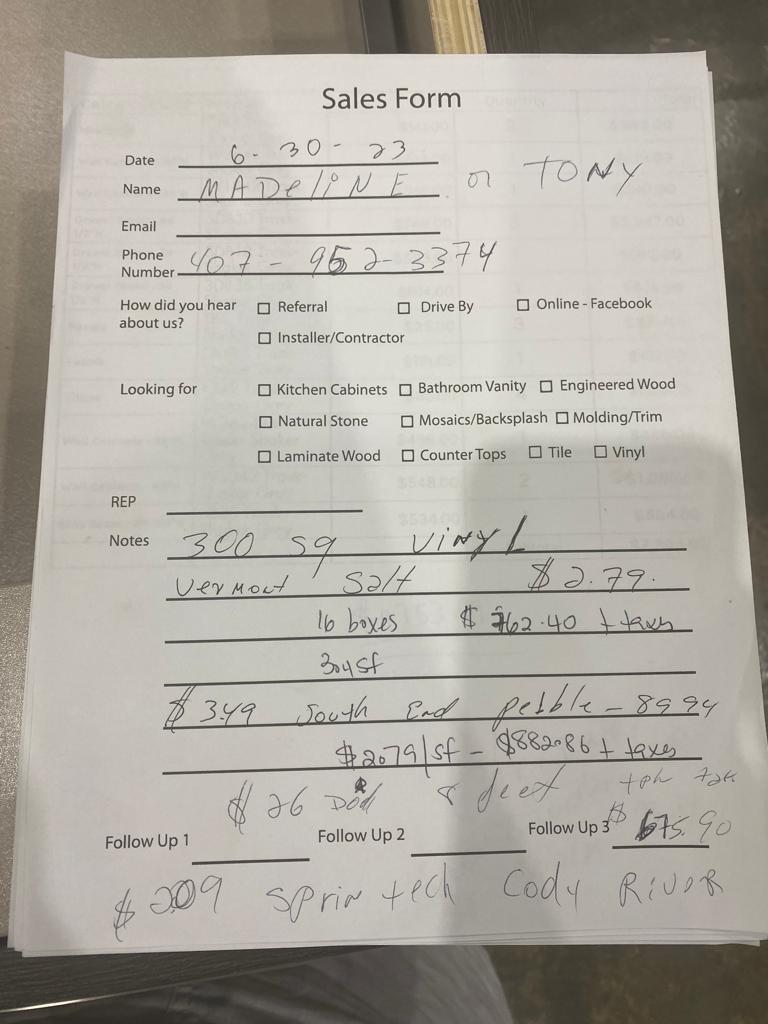 Sales Form
Date 6-30-23
Name MADeliNE or TONY
Email
Phone Number 407-952-3374
How did you hear about us? ☐ Referral ☐ Drive By ☐ Online - Facebook
☐ Installer/Contractor
Looking for ☐ Kitchen Cabinets ☐ Bathroom Vanity ☐ Engineered Wood
☐ Natural Stone ☐ Mosaics/Backsplash ☐ Molding/Trim
☐ Laminate Wood ☐ Counter Tops ☐ Tile ☐ Vinyl
REP
Notes 300 sq VINYL
Vermont Salt $2.79.
16 boxes $762.40 + taxes
304sf
$3.49 South End pebble - 8994
$2.79/sf - $882.86 + taxes
$26 8 feet
Follow Up 1 Follow Up 2 Follow Up 3 $675.90
$2.09 Sprin tech Cody RiVER